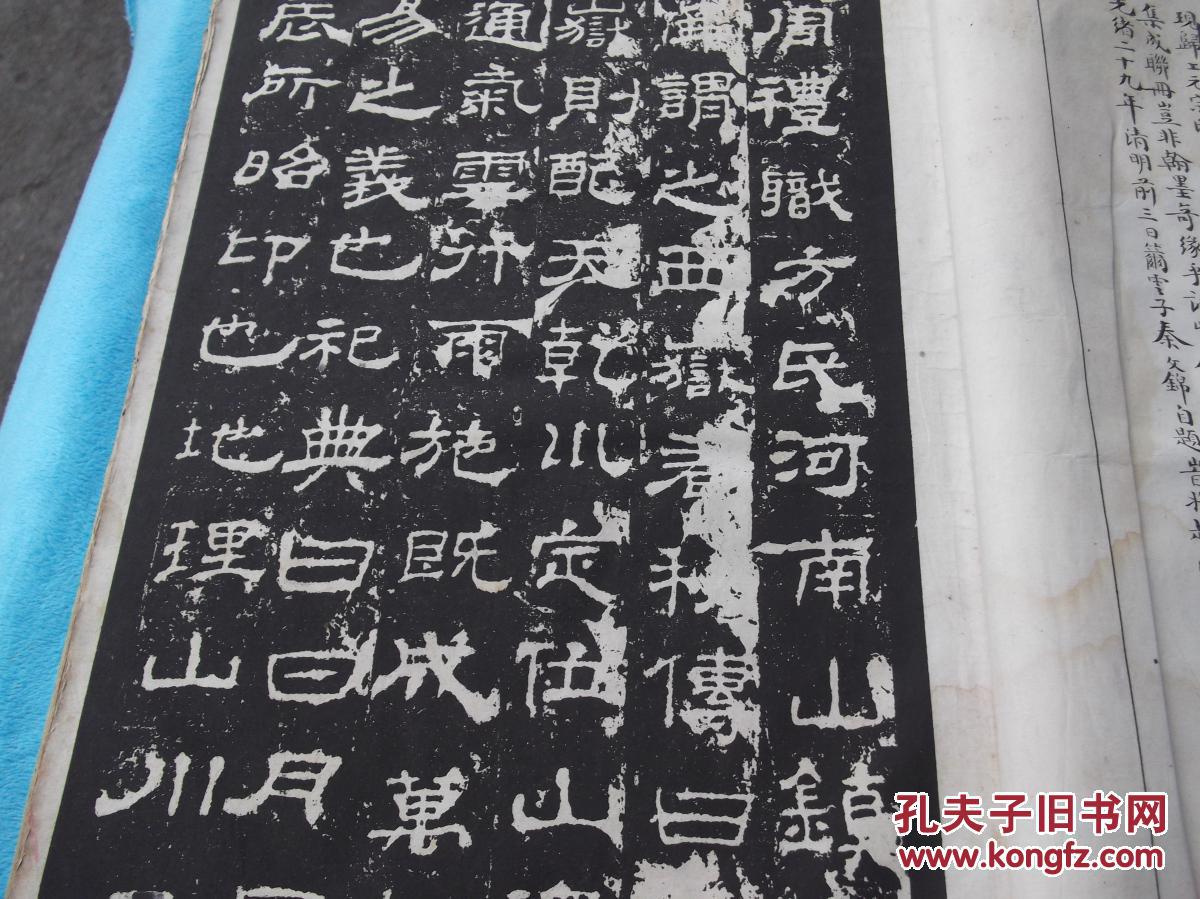 現歸
集成聯冊豈非翰墨奇緣
光緒二十九年清明前三日簫雲子秦文錦自題
周禮職方氏河南山鎮
華謂之西嶽春秋傳曰
嶽則配天乾川定位山
通氣雲行雨施既成萬
易之義也祀典曰日月
辰所昭印也地理山川
孔夫子旧书网
www.kongfz.com